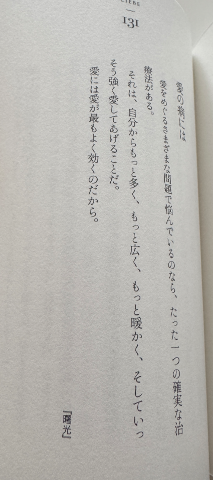 LIEBE
131
愛の病には
愛をめぐるさまざまな問題で悩んでいるのなら、たった一つの確実な治
療法がある。
それは、自分からもっと多く、もっと広く、もっと暖かく、そしていっ
そう強く愛してあげることだ。
愛には愛が最もよく効くのだから。
『曙光』